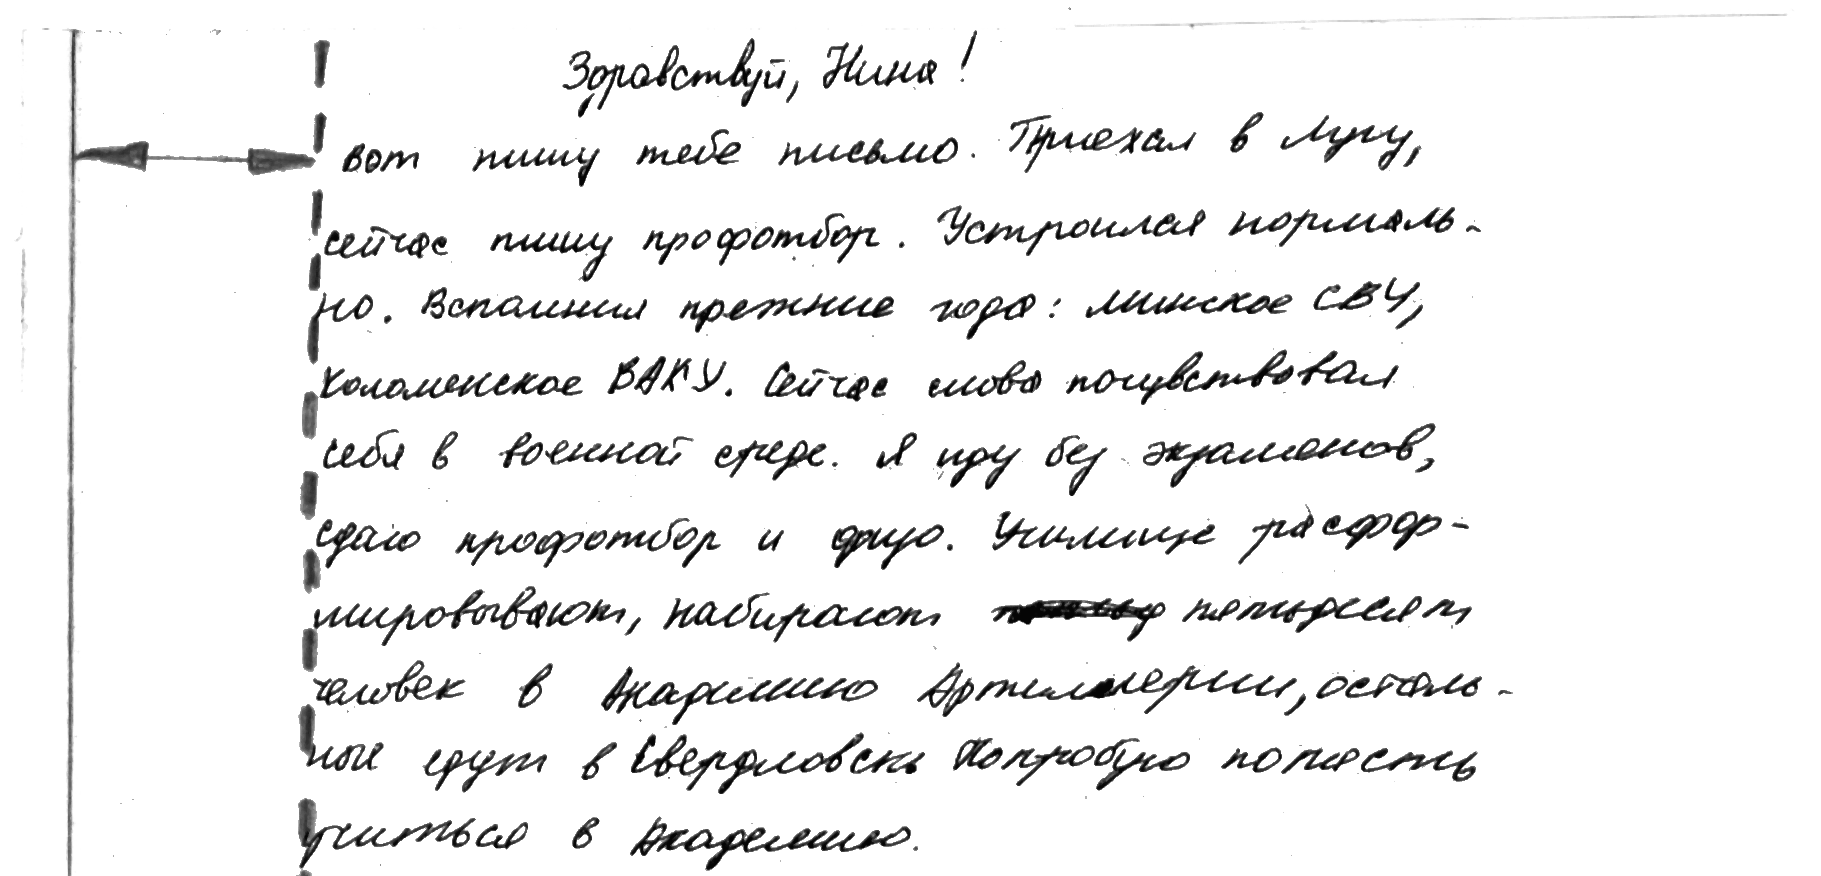 Здравствуй, Нина!
Вот пишу тебе письмо. Приехал в Лугу,
сейчас пишу профотбор. Устроился нормаль-
но. Вспомнил прежние года: Минское СВУ,
Коломенское ВАКУ. Сейчас снова почувствовал
себя в военной среде. Я иду без экзаменов,
сдаю профотбор и физо. Училище расфор-
мировывают, набирают пятьдесят
человек в Академию Артиллерии, осталь-
ные едут в Свердловск. Попробую попасть
учиться в Академию.